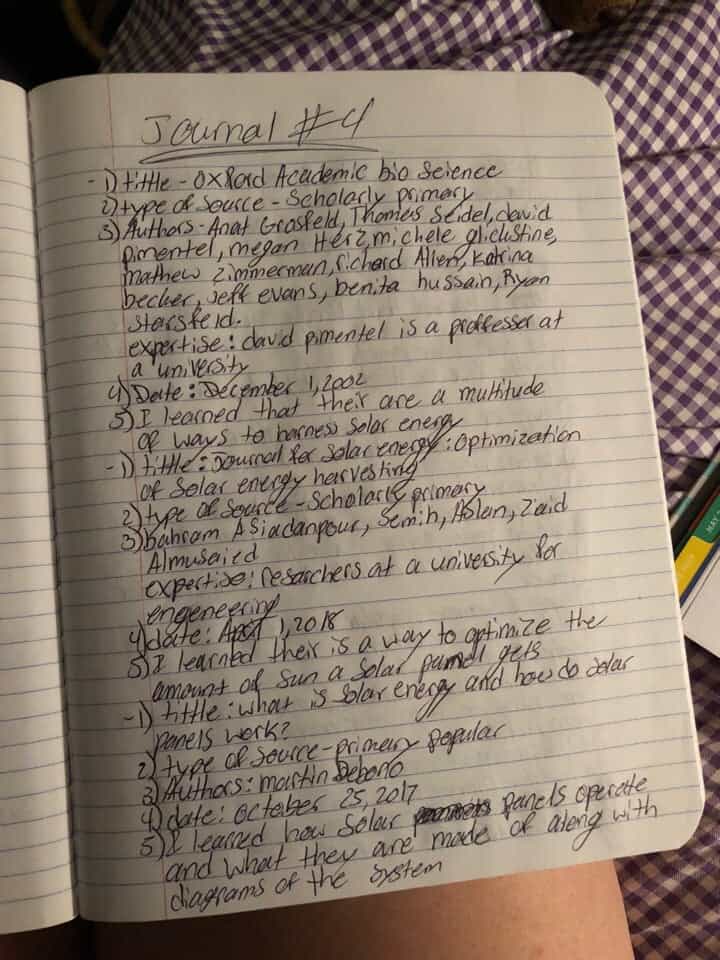 Journal #4
-1) tittle - Oxford Academic bio Science
2) type of source - Scholarly primary
3) Authors - Anat Grosfeld, Thomas Seidel, david
pimentel, megan Herz, michele glickstine,
mathew Zimmerman, richard Allen, Katrina
becker, Jeff evans, benita hussain, Ryan
starsfeld.
expertise: david pimentel is a proffesser at
a university
4) Date: December 1, 2002
5) I learned that their are a multitude
of ways to harness solar energy
-1) tittle: Journal for solar energy: optimization
of solar energy harvesting
2) type of source - Scholarly primary
3) bahram Asiadanpour, Semih, Aslan, Zaid
Almusaied
expertise: resarchers at a university for
engeneering
4) date: April 1, 2018
5) I learned their is a way to optimize the
amount of sun a solar panel gets
-1) tittle: what is solar energy and how do solar
panels work?
2) type of source - primary popular
3) Authors: martin Debono
4) date: october 25, 2017
5) I learned how solar panels operate
and what they are made of along with
diagrams of the system